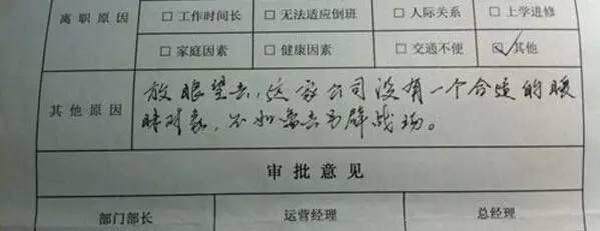 离职原因
□ 工作时间长 □ 无法适应倒班 □ 人际关系 □ 上学进修
□ 家庭因素 □ 健康因素 □ 交通不便 ☑ 其他
其他原因
放眼望去，这家公司没有一个合适的暧
昧对象，不如离去另辟战场。
审批意见
部门部长 运营经理 总经理